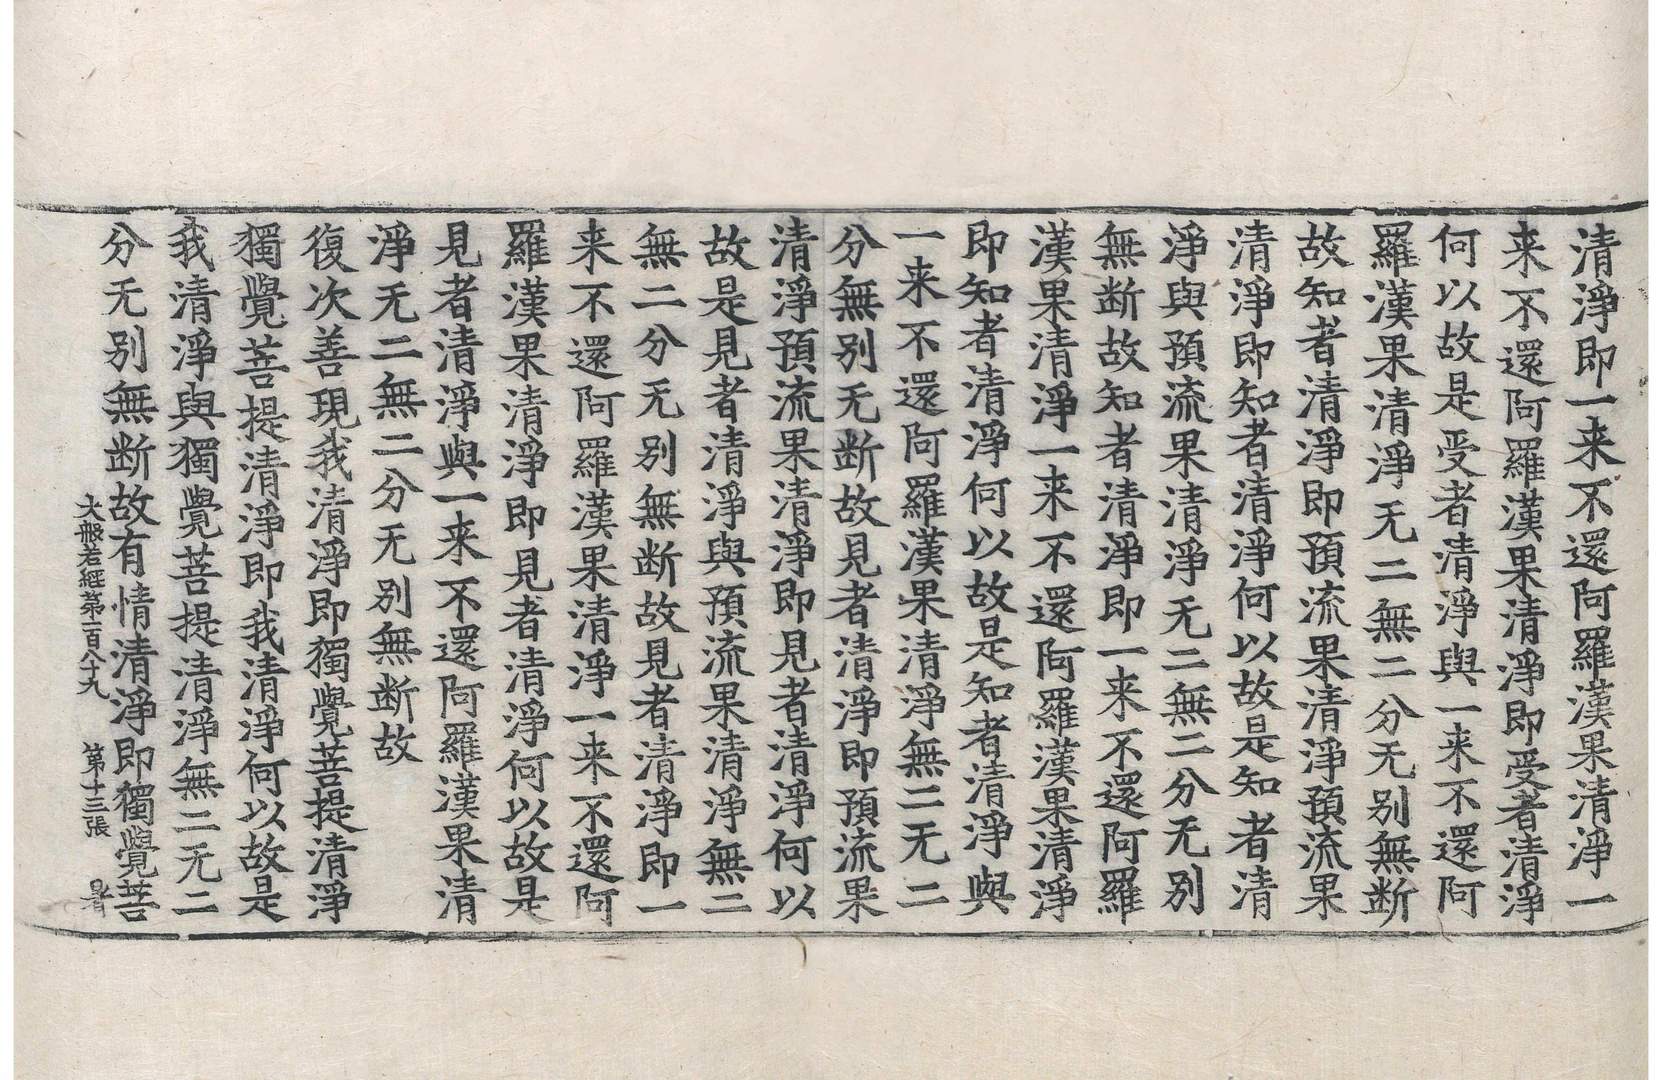 清淨即一来不還阿羅漢果清淨一
来不還阿羅漢果清淨即受者清淨
何以故是受者清淨與一来不還阿
羅漢果清淨无二無二分无别無断
故知者清淨即預流果清淨預流果
清淨即知者清淨何以故是知者清
淨與預流果清淨无二無二分无别
無断故知者清淨即一来不還阿羅
漢果清淨一来不還阿羅漢果清淨
即知者清淨何以故是知者清淨與
一来不還阿羅漢果清淨無二无二
分無别无断故見者清淨即預流果
清淨預流果清淨即見者清淨何以
故是見者清淨與預流果清淨無二
無二分无别無断故見者清淨即一
来不還阿羅漢果清淨一来不還阿
羅漢果清淨即見者清淨何以故是
見者清淨與一来不還阿羅漢果清
淨无二無二分无别無断故
復次善現我清淨即獨覺菩提清淨
獨覺菩提清淨即我清淨何以故是
我清淨與獨覺菩提清淨無二无二
分无别無断故有情清淨即獨覺菩
大般若經第一百八十九 第十三張